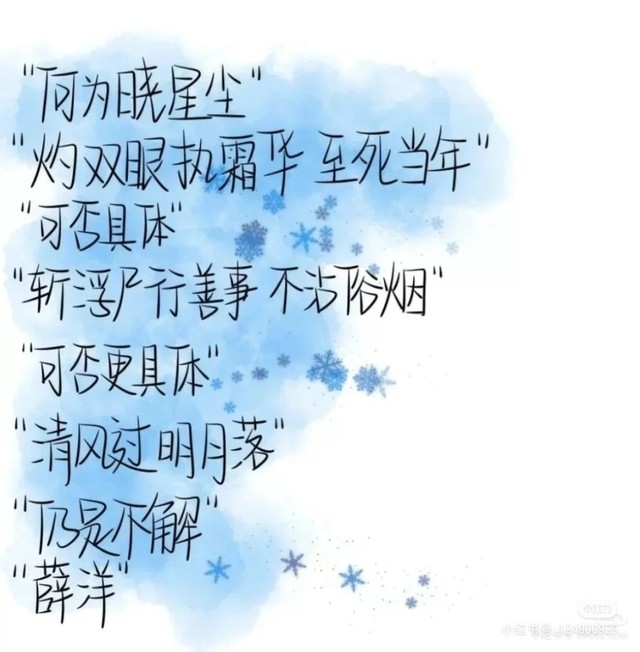 "何为晓星尘"
"灼双眼执霜华 至死当年"
"可否具体"
"斩浮尸行善事 不沾俗烟"
"可否更具体"
"清风过 明月落"
"仍是不解"
"薛洋"
小红书
小红书号: